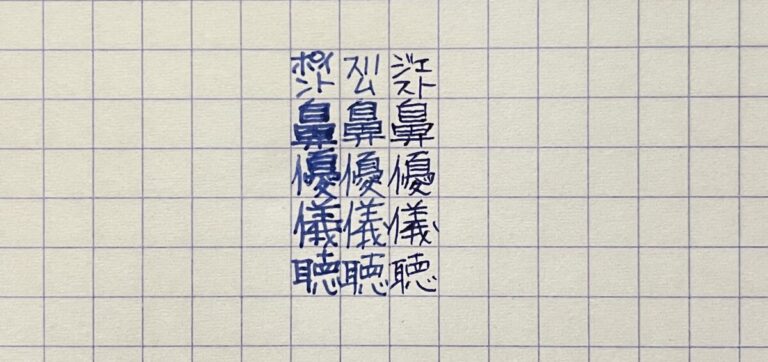 ポイント スリム ジェスト
鼻 鼻 鼻
優 優 優
儀 儀 儀
聴 聴 聴